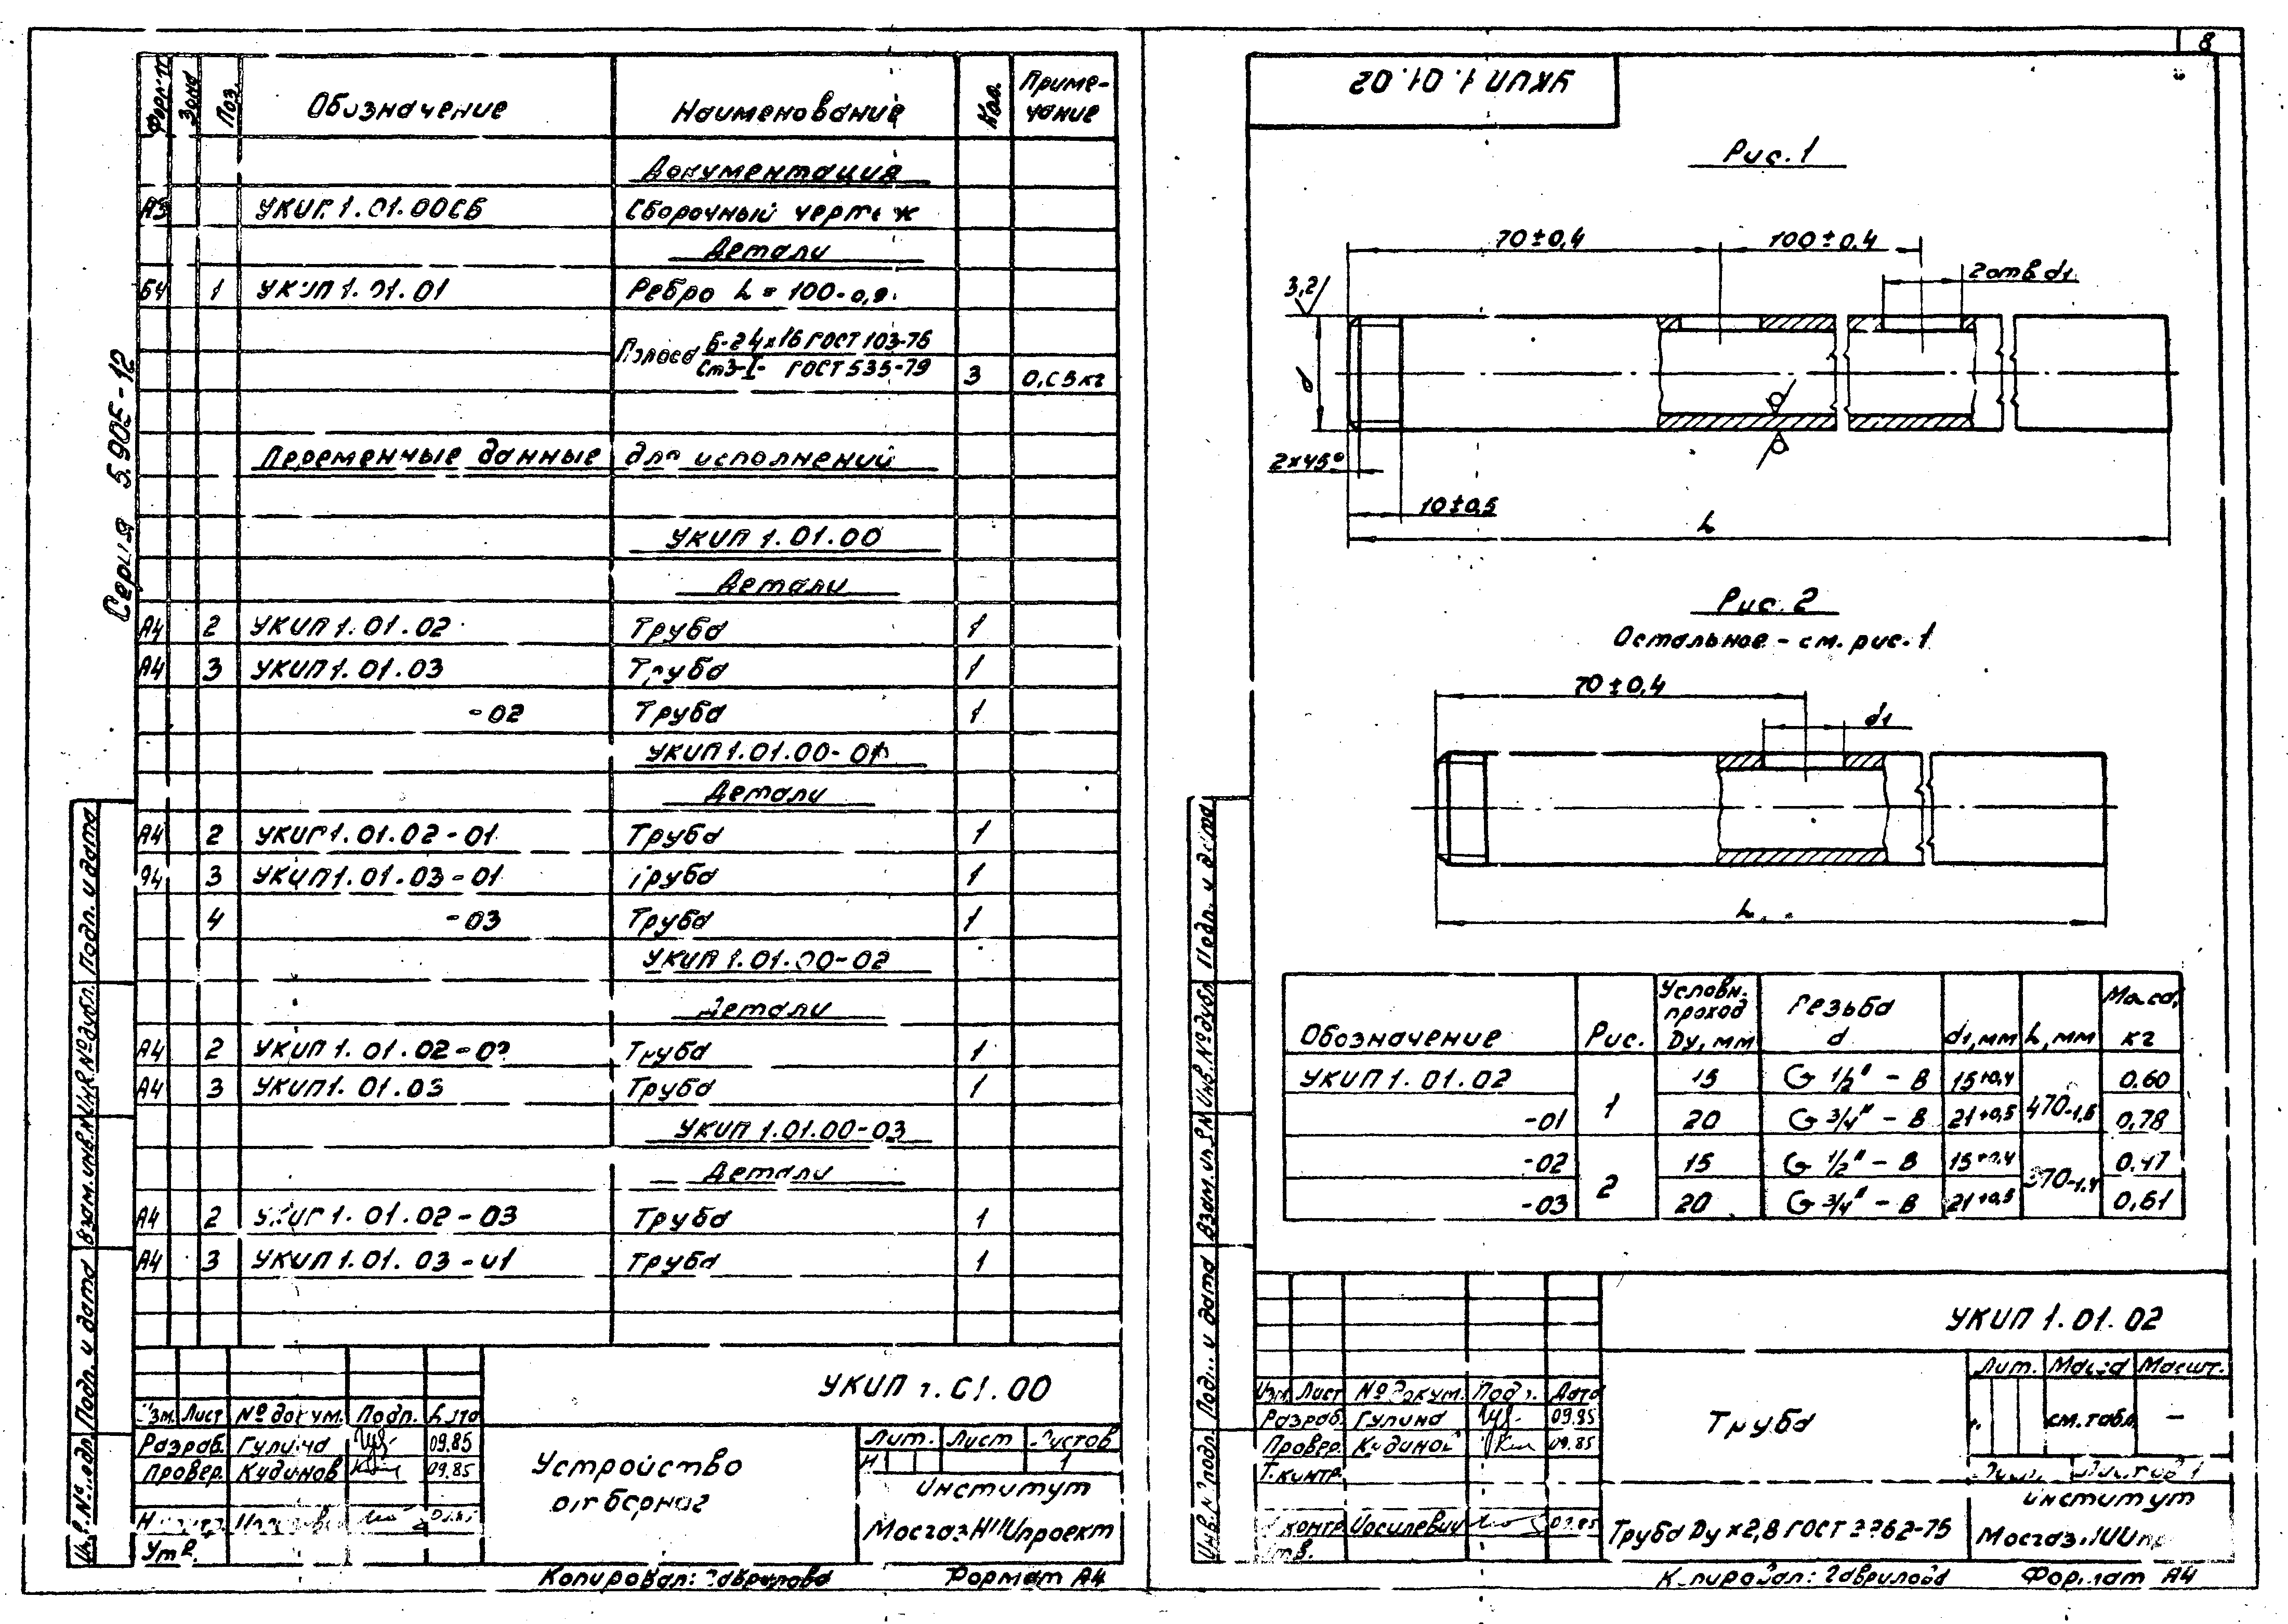 8
Серия 5.905-12
Формат Зона Поз. Обозначение Наименование Кол. Примечание
Документация
А3 УКИП 1.01.00СБ Сборочный чертеж
Детали
Б4 1 УКИП 1.01.01 Ребро L = 100-0,9
Полоса Б-24х16 ГОСТ 103-76
Ст3-I- ГОСТ 535-79 3
Переменные данные для исполнений
УКИП 1.01.00
Детали
А4 2 УКИП 1.01.02 Труба 1
А4 3 УКИП 1.01.03 Труба 1
-02 Труба 1
УКИП 1.01.00-01
Детали
А4 2 УКИП 1.01.02-01 Труба 1
А4 3 УКИП 1.01.03-01 Труба 1
4 -03 Труба 1
УКИП 1.01.00-02
Детали
А4 2 УКИП 1.01.02-02 Труба 1
А4 3 УКИП 1.01.03 Труба 1
УКИП 1.01.00-03
Детали
А4 2 УКИП 1.01.02-03 Труба 1
А4 3 УКИП 1.01.03-01 Труба 1
Инв. № подл. Подп. и дата Взам. инв. № Инв. № дубл. Подп. и дата
УКИП 1.01.00
Изм. Лист № докум. Подп. Дата
Разраб. Гулина 09.85
Провер. Кудинов 09.85
Н. контр.
Утв.
Устройство
отборное
Лит. Лист Листов
И 1
Институт
МосгазНИИпроект
Копировал: Гаврилова Формат А4
УКИП 1.01.02
Рис. 1
70±0,4 100±0,4
2 отв. d1
3,2
d
2×45°
10±0,5
L
Рис. 2
Остальное - см. рис. 1
70±0,4
d1
L
Обозначение Рис. Условн. проход Dу, мм Резьба d d1, мм L, мм Масса, кг
УКИП 1.01.02 1 15 G 1/2" - В 15+0,4 470-1,6 0,60
-01 20 G 3/4" - В 21+0,5 0,78
-02 2 15 G 1/2" - В 15+0,4 370-1,4 0,47
-03 20 G 3/4" - В 21+0,5 0,61
Инв. № подл. Подп. и дата Взам. инв. № Инв. № дубл. Подп. и дата
УКИП 1.01.02
Изм. Лист № докум. Подп. Дата
Разраб. Гулина 09.85
Провер. Кудинов 09.85
Т. контр.
Н. контр. Иосилевич 09.85
Утв.
Труба
Лит. Масса Масшт.
см. табл. -
Лист Листов 1
Труба Dу×2,8 ГОСТ 3262-75
Институт
Копировал: Гаврилова Формат А4